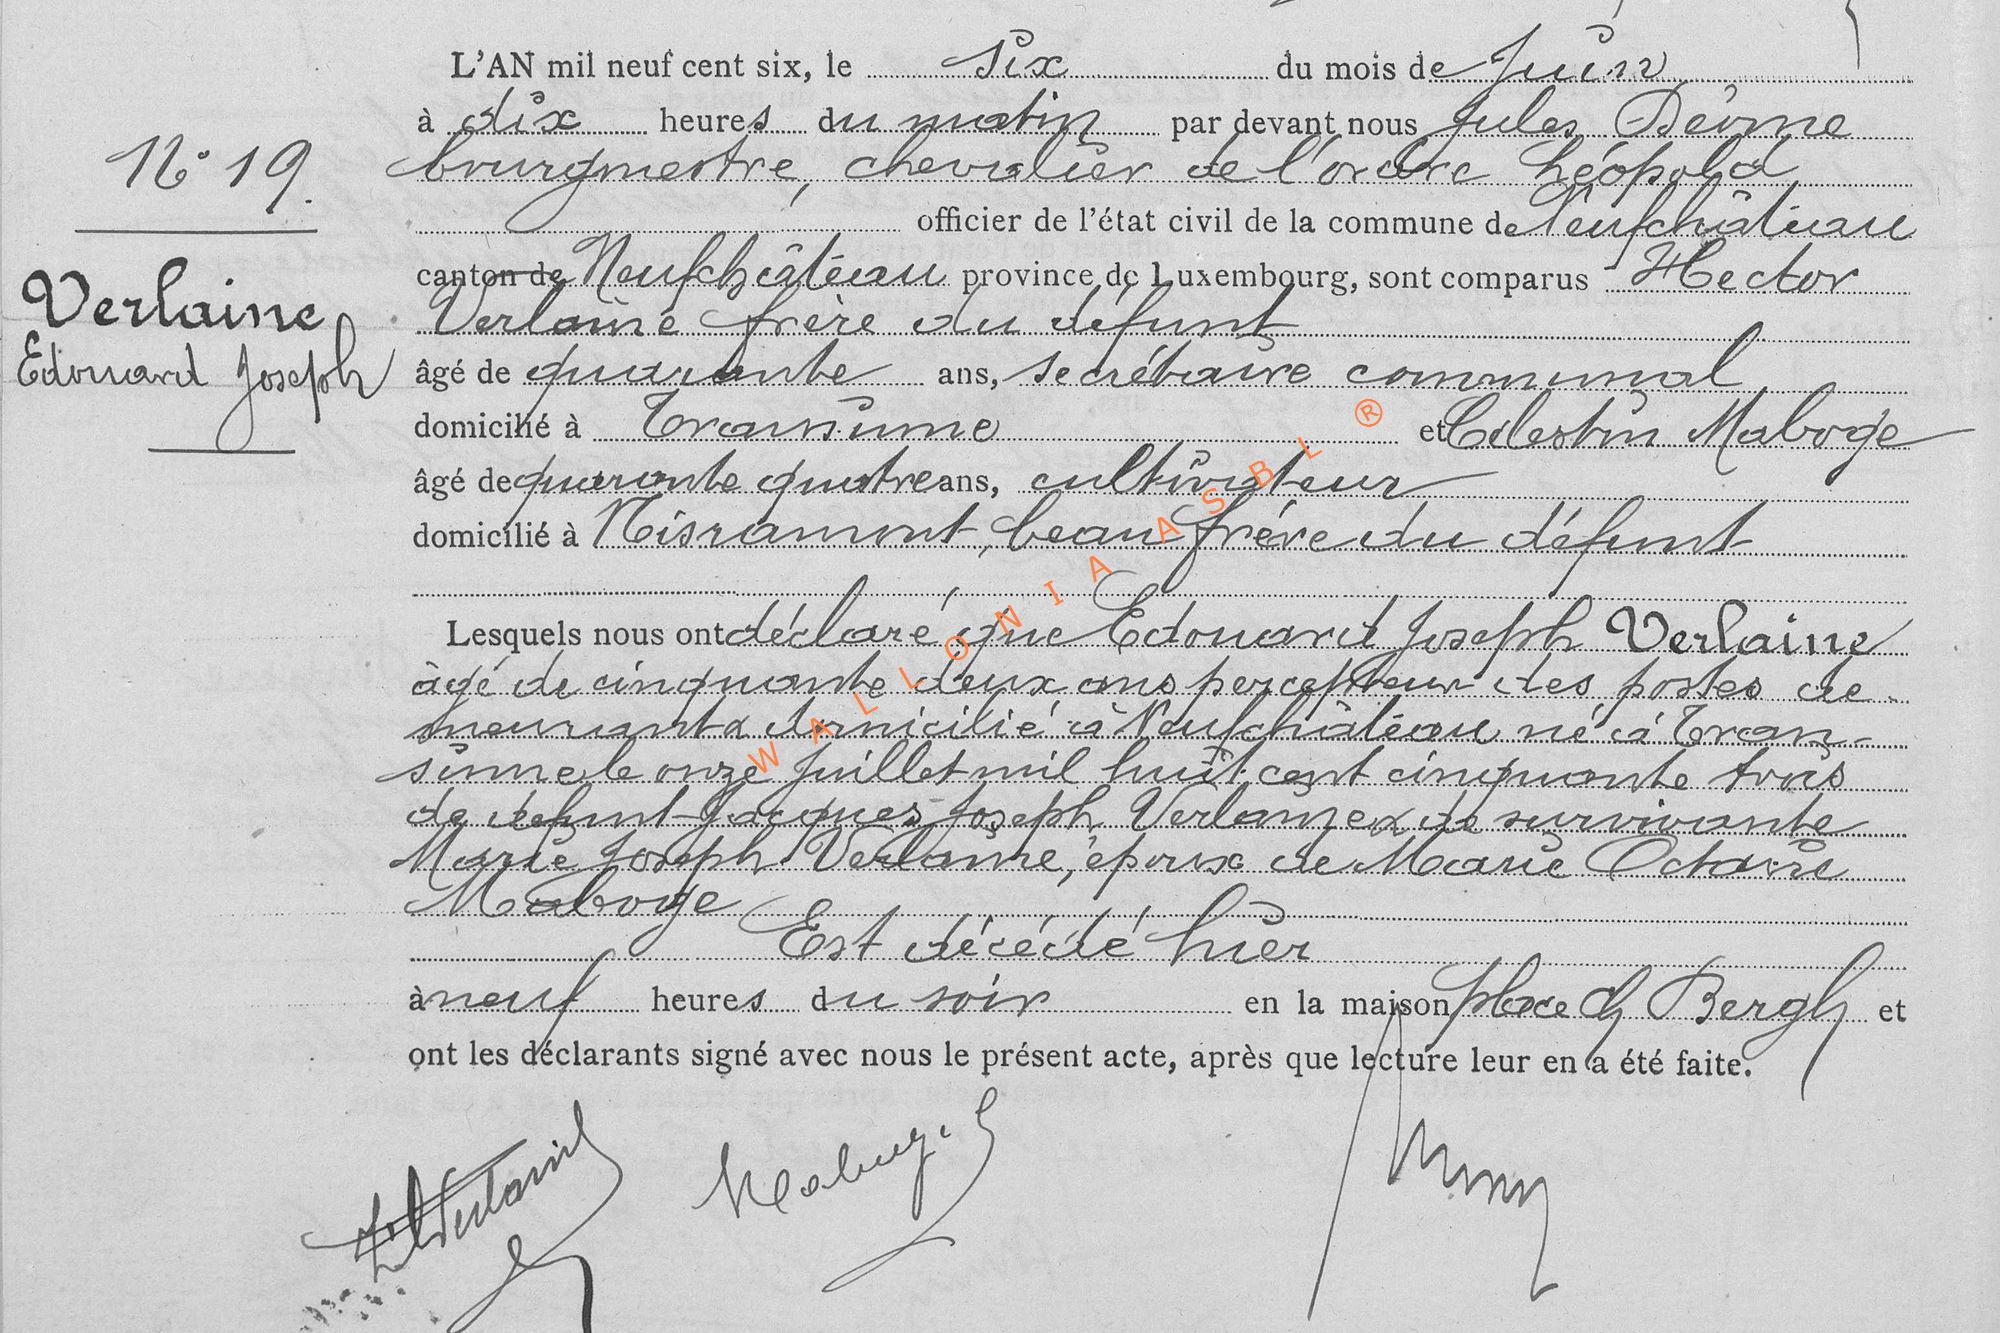 L'AN mil neuf cent six, le six du mois de Juin
à dix heures du matin par devant nous Jules
N° 19.
bourgmestre, chevalier de l'ordre Léopold
officier de l'état civil de la commune de Neufchâteau
canton de Neufchâteau province de Luxembourg, sont comparus Hector
Verlaine
Edouard Joseph
Verlaine frère du défunt
âgé de quarante ans, secrétaire communal
domicilié à Transinne et Célestin Maboge
âgé de quarante quatre ans, cultivateur
domicilié à Nisramont, beau frère du défunt
Lesquels nous ont déclaré que Edouard Joseph Verlaine
âgé de cinquante deux ans percepteur des postes de-
meurant & domicilié à Neufchâteau né à Tran-
sinne le onze Juillet mil huit cent cinquante trois
de défunt Jacques Joseph Verlaine & de survivante
Marie Joseph Verlaine, époux de Marie Octavie
Maboge
Est décédé hier
à neuf heures du soir en la maison place Ch Bergh et
ont les déclarants signé avec nous le présent acte, après que lecture leur en a été faite.
WALLONIA ASBL ®